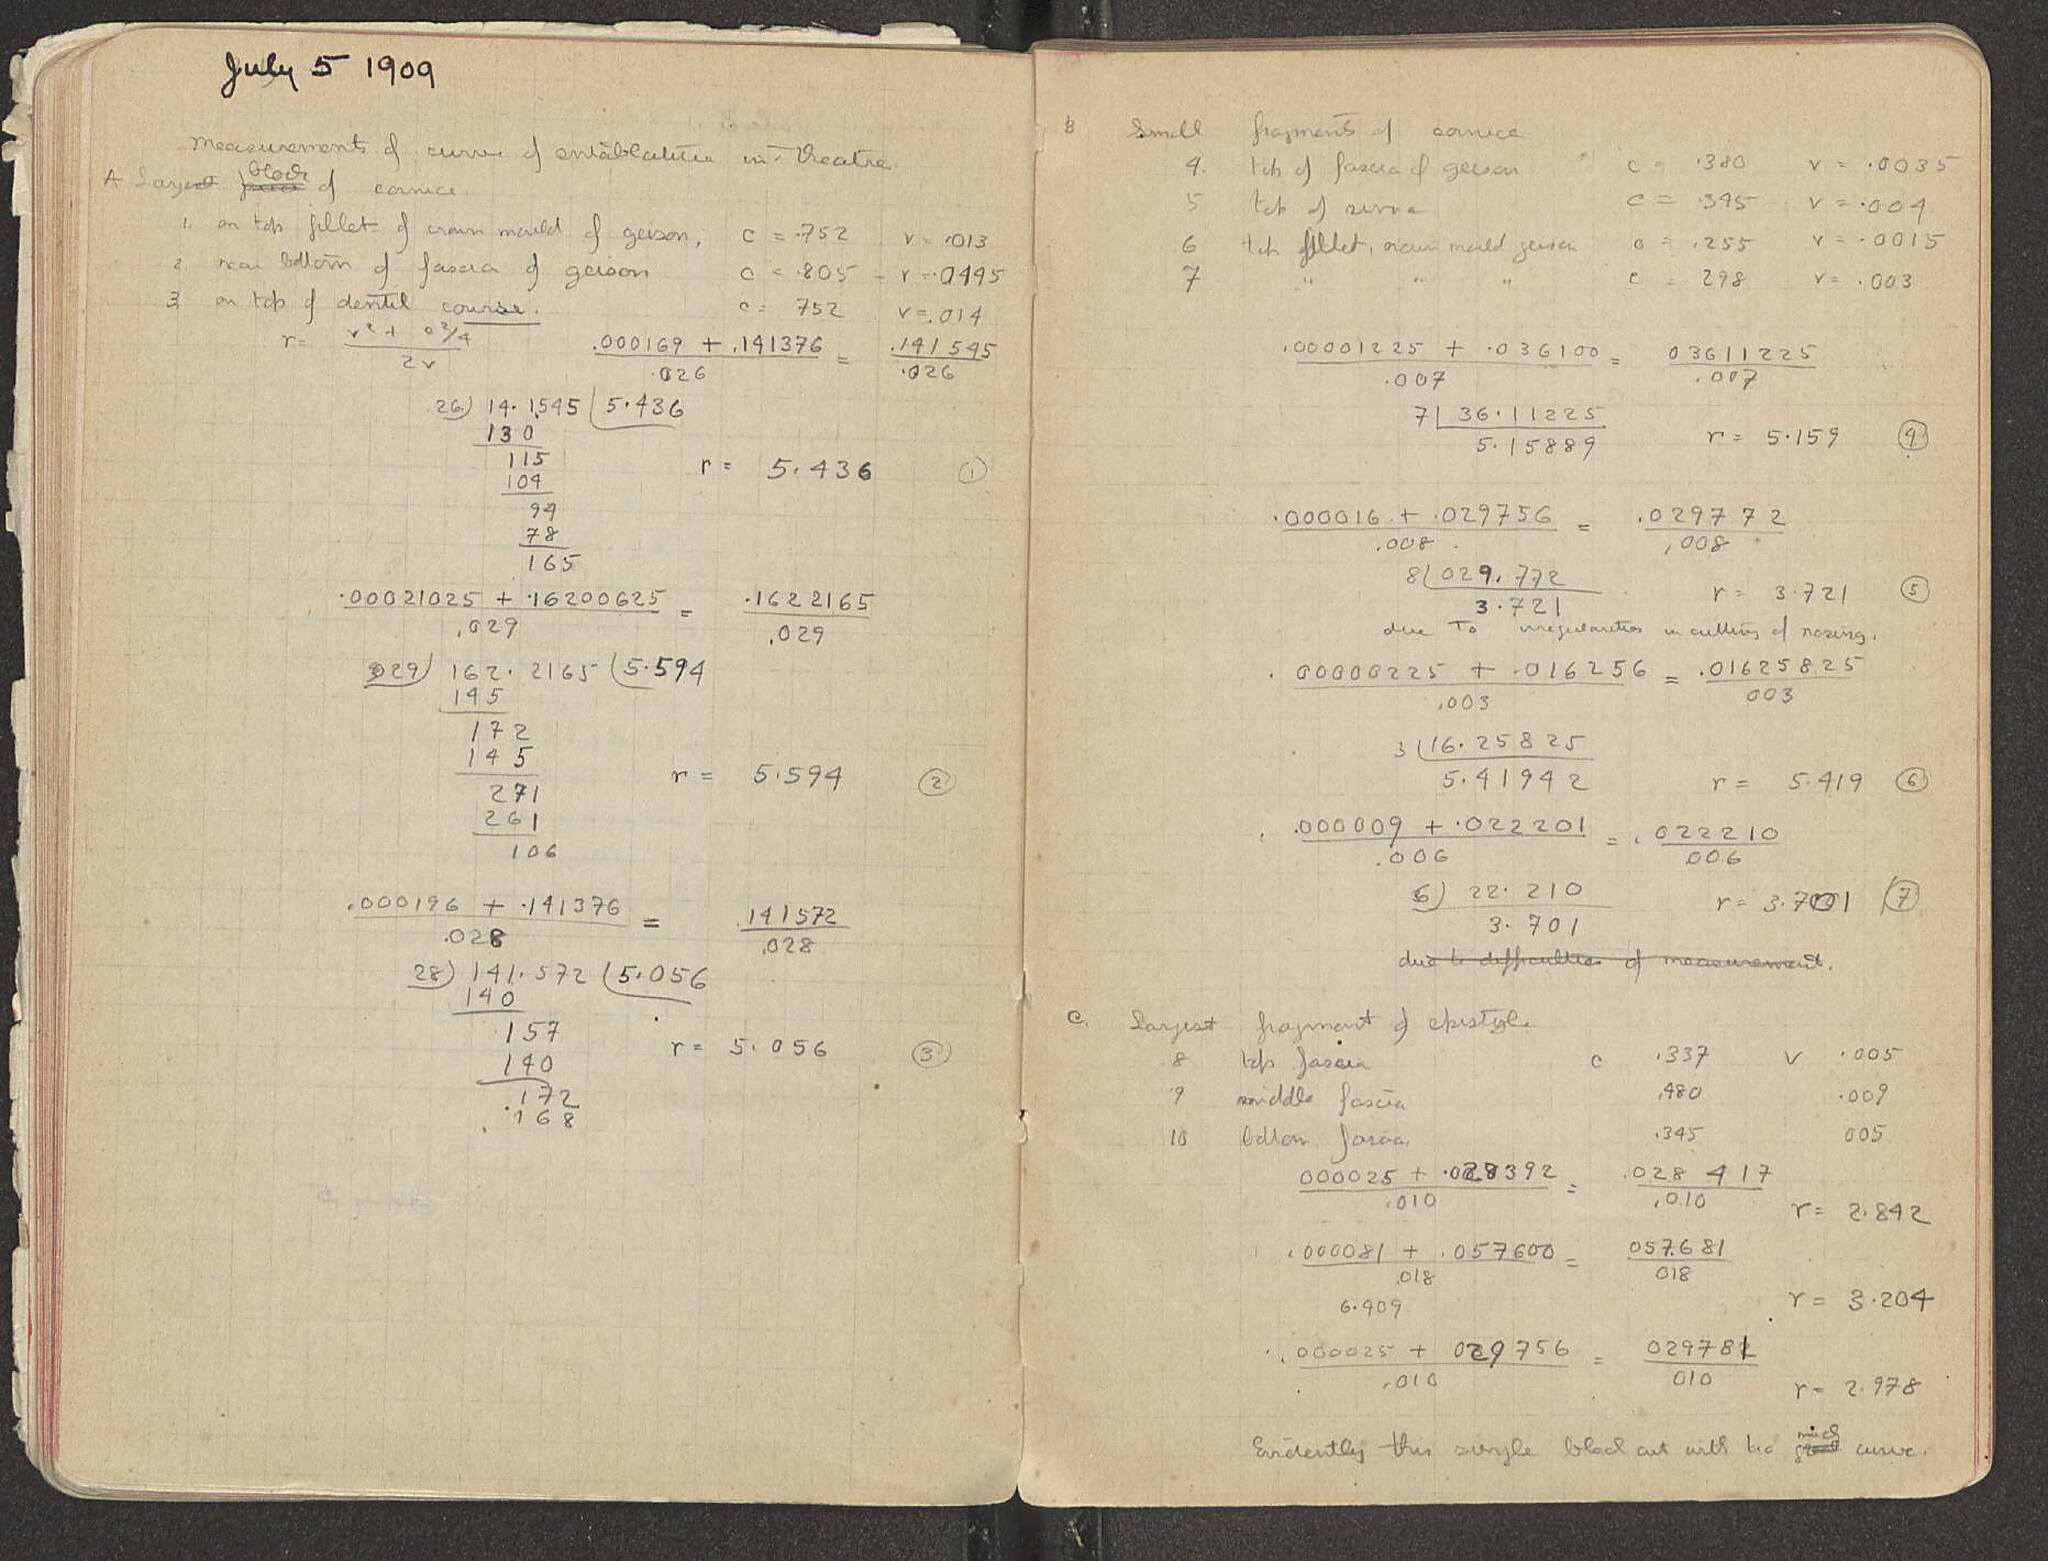 July 5 1909
Measurements of curve of entablature in theatre
A Largest block of cornice
1. on top fillet of crown mould of geison, c = .752 v = .013
2. near bottom of fascia of geison c = .805 - v = .0145
3 on top of dentil course. c = 752 v = .014
r = v² + c²/4 / 2v .000169 + .141376 / .026 = .141545 / .026
26) 14.1545 (5.436
130
115
104
94
78
165
r = 5.436 (1)
.00021025 + .16200625 / .029 = .1622165 / .029
029) 162.2165 (5.594
145
172
145
271
261
106
r = 5.594 (2)
.000196 + .141376 / .028 = .141572 / .028
28) 141.572 (5.056
140
157
140
.172
.168
r = 5.056 (3)
B Small fragments of cornice
4. top of fascia of geison c = .380 v = .0035
5 top of c = .345 v = .004
6 top fillet, crown mould geison c = .255 v = .0015
7 " " " c = 298 v = .003
.00001225 + .036100 / .007 = 03611225 / .007
7 | 36.11225
5.15889
r = 5.159 (4)
.000016 + .029756 / .008 = .029772 / .008
8 | 029.772
3.721
r = 3.721 (5)
due to irregularities in cutting of nosing.
.00000225 + .016256 / .003 = .01625825 / 003
3 | 16.25825
5.41942
r = 5.419 (6)
.000009 + .022201 / .006 = .022210 / .006
6) 22.210
3.701
r = 3.701 (7)
due to difficulties of measurement.
C. Largest fragment of epistyle
8 top fascia c .337 v .005
9 middle fascia .480 .009
10 bottom fascia .345 005
000025 + .028392 / .010 = .028417 / .010
r = 2.842
.000081 + .057600 / .018 = 057.681 / 018
6.409
r = 3.204
.000025 + 029756 / .010 = 029781 / 010
r = 2.978
Evidently this single block cut with too much curve.